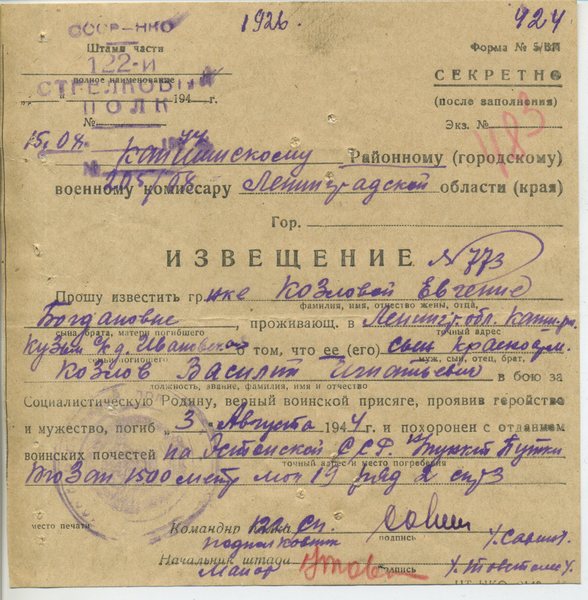 1926 424
СССР-НКО
Штамп части Форма № 5/БП
122-й
полное наименование СЕКРЕТНО
СТРЕЛКОВЫЙ
ПОЛК
194 г. (после заполнения)
№ Экз. №
1183
15.08. 44
Районному (городскому)
№ 205/08
военному комиссару Ленинградской области (края)
Гор.
ИЗВЕЩЕНИЕ №773
Прошу известить гр-нке Козловой Евгение
фамилия, имя, отчество жены, отца,
Богдановне, проживающ. в Ленингр. обл.
сына, брата, матери погибшего точный адрес
д. Ивановской о том, что ее (его) сын красноарм.
муж, сын, отец, брат,
Козлов Василий Игнатьевич в бою за
должность, звание, фамилия, имя и отчество
Социалистическую Родину, верный воинской присяге, проявив геройство
и мужество, погиб „3" Августа 1944 г. и похоронен с отданием
воинских почестей на Эстонской ССР пункт Путки
точный адрес и место погребения
1500 метр мог 19 ряд 2
место печати
Командир 122 сп.
подполковник подпись
Начальник штаба
Майор подпись